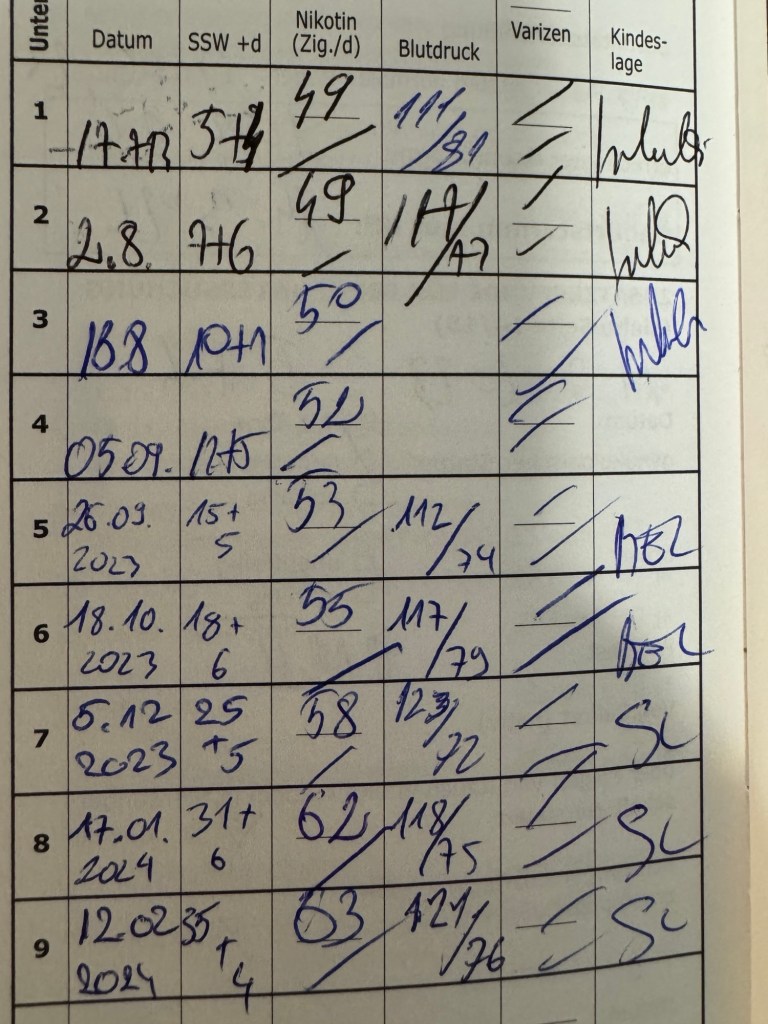 Unter
Datum SSW +d Nikotin (Zig./d) Blutdruck Varizen Kindes-lage
1 49 111
17.7.23 5+4 / /81
2 49 117/
2.8. 7+6 /
3 50
16.8 10+1 /
4 52
05.09. 12+5 /
5 26.09. 15+ 53 112
2023 5 / /74 BEL
6 18.10. 18+ 55 117
2023 6 / /79 BEL
7 5.12 25 58 123/
2023 +5 / 72 SL
8 17.01. 31+ 62 118/
2024 6 / /75 SL
9 12.02 35 63 121/
2024 +4 / 76 SL